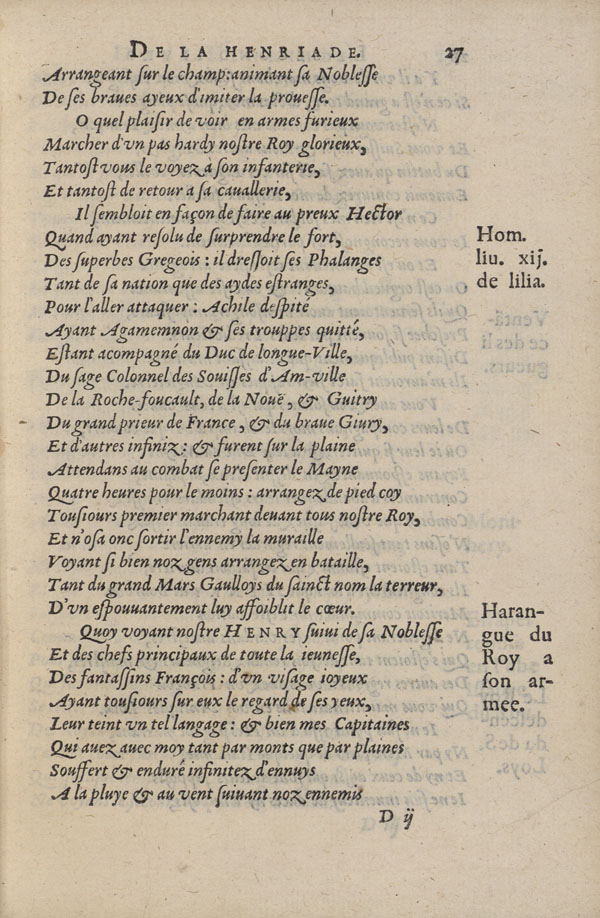 DE LA HENRIADE. 27
Arrangeant ſur le champ:animant ſa Nobleſſe
De ſes braues ayeux d'imiter la proueſſe.
O quel plaiſir de voir en armes furieux
Marcher d'vn pas hardy noſtre Roy glorieux,
Tantoſt vous le voyez a ſon infanterie,
Et tantoſt de retour a ſa cauallerie,
Il ſembloit en façon de faire au preux Hector
Quand ayant reſolu de ſurprendre le fort,
Hom.
Des ſuperbes Gregeois : il dreſſoit ſes Phalanges
liu. xij.
Tant de ſa nation que des aydes eſtranges,
de lilia.
Pour l'aller attaquer : Achile deſpité
Ayant Agamemnon & ſes trouppes quitié,
Eſtant acompagné du Duc de longue-Ville,
Du ſage Colonnel des Souiſſes d'Am-ville
De la Roche-foucault, de la Nouë, & Guitry
Du grand prieur de France, & du braue Giury,
Et d'autres infiniz : & furent ſur la plaine
Attendans au combat ſe preſenter le Mayne
Quatre heures pour le moins : arrangez de pied coy
Touſiours premier marchant deuant tous noſtre Roy,
Et n'oſa onc ſortir l'ennemy la muraille
Voyant ſi bien noz gens arrangez en bataille,
Tant du grand Mars Gaulloys du ſainct nom la terreur,
D'vn eſpouuantement luy affoiblit le cœur.
Haran-
Quoy voyant noſtre HENRY ſuiui de ſa Nobleſſe
gue du
Et des chefs principaux de toute la ieuneſſe,
Roy a
Des fantaſſins François : d'vn viſage ioyeux
ſon ar-
Ayant touſiours ſur eux le regard de ſes yeux,
mee.
Leur teint vn tel langage : & bien mes Capitaines
Qui auez auec moy tant par monts que par plaines
Souffert & enduré infinitez d'ennuys
A la pluye & au vent ſuiuant noz ennemis
D ij